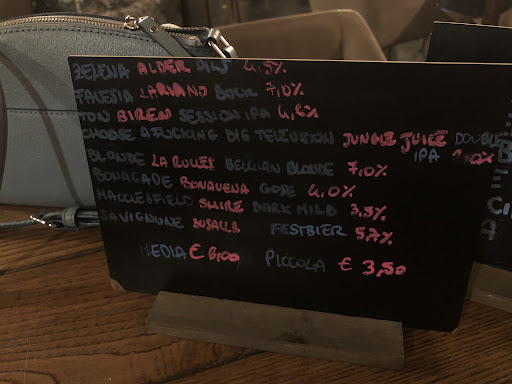 ZELENA ALDER PILS 4,5%
FALESIA LARIANO BOCK 7,0%
TON BIREN SESSION IPA 4,6%
CHOOSE A FUCKING BIG TELEVISION JUNGLE JUICE DOUBLE
IPA 8,0%
BLONDE LA RULLES BELGIAN BLONDE 7,0%
BONAGADE BONAVENA GOSE 4,0%
MACCLESFIELD SHIRE DARK MILD 3,5%
SAVIGNONE BUSALLA FESTBIER 5,7%
MEDIA € 6,00 PICCOLA € 3,50